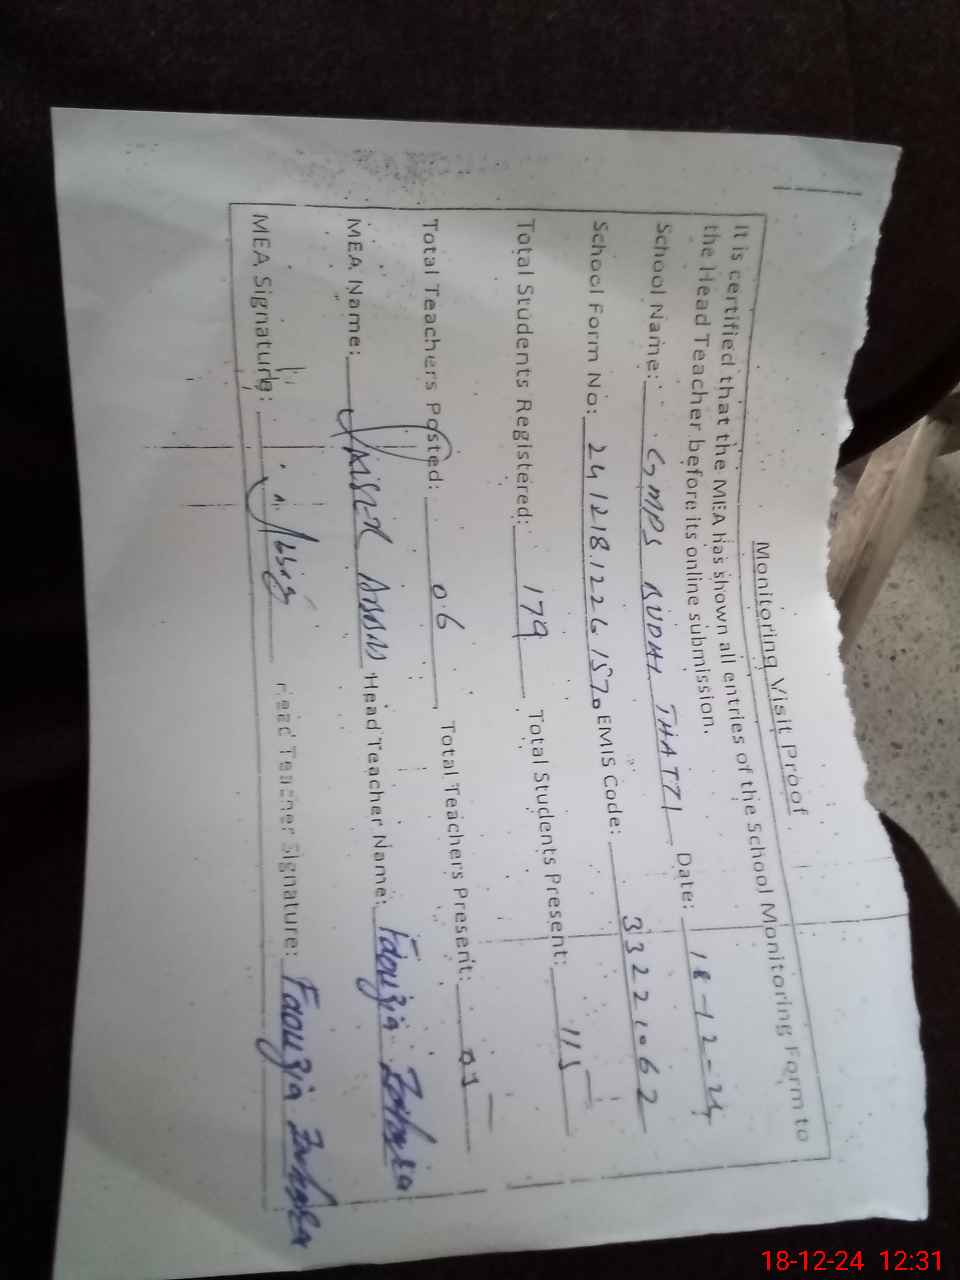 Monitoring Visit Proof
It is certified that the MEA has shown all entries of the School Monitoring Form to
the Head Teacher before its online submission.
School Name: GMPS BUDHI THATTI Date: 18-12-24
School Form No: 24121812261570 EMIS Code: 33221062
Total Students Registered: 179 Total Students Present: 115
Total Teachers Posted: 06 Total Teachers Present: 05
MEA Name: Head Teacher Name: Faouzia
MEA Signature: Abbas Head Teacher Signature: Faouzia
18-12-24 12:31